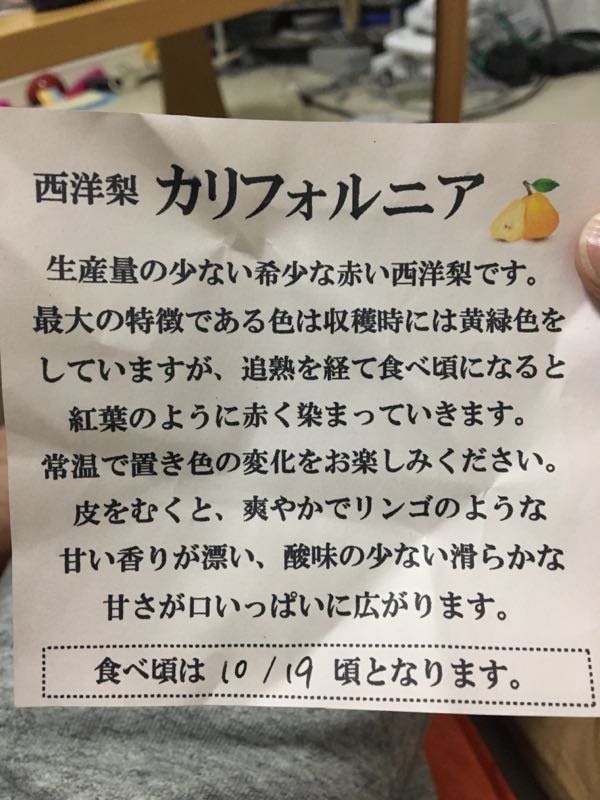 西洋梨 カリフォルニア
生産量の少ない希少な赤い西洋梨です。
最大の特徴である色は収穫時には黄緑色を
していますが、追熟を経て食べ頃になると
紅葉のように赤く染まっていきます。
常温で置き色の変化をお楽しみください。
皮をむくと、爽やかでリンゴのような
甘い香りが漂い、酸味の少ない滑らかな
甘さが口いっぱいに広がります。
食べ頃は 10/19 頃となります。